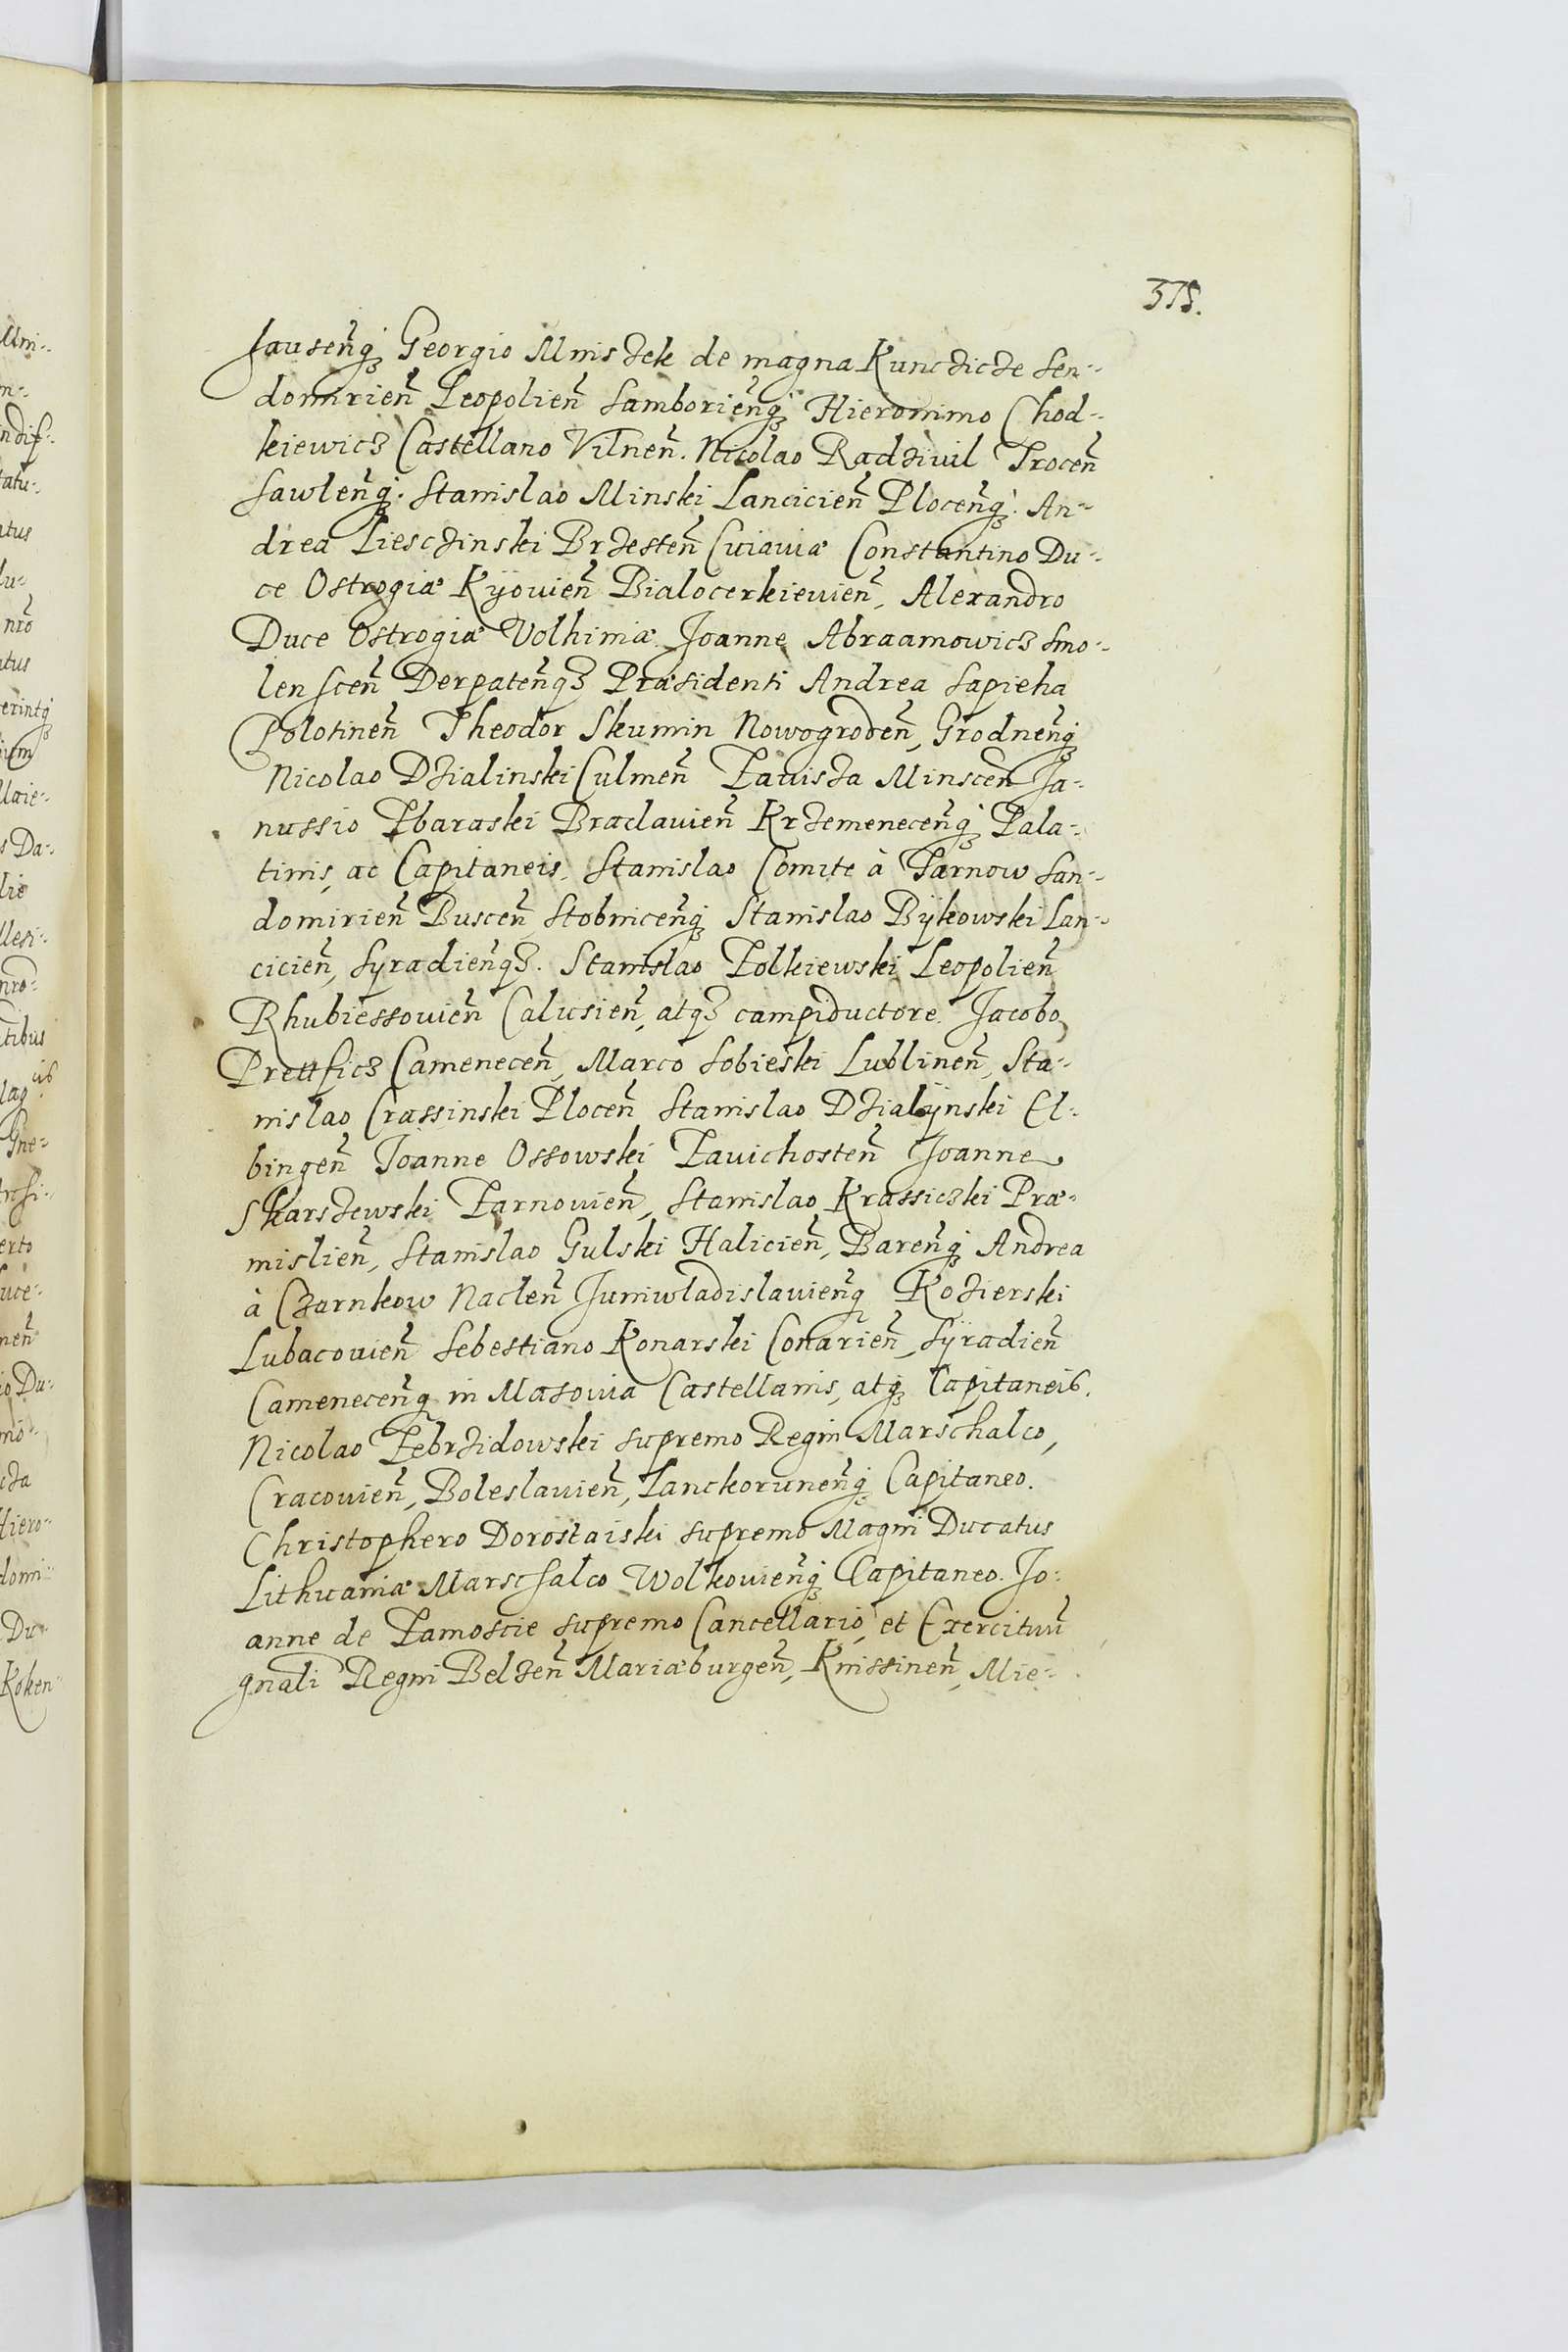 375.
Jauseñq́ʒ Georgio Mniszek de magna Kunczicze Sen=
domirieñ Leopolieñ Samborieñq́ʒ Hieronimo Chod=
kiewicz Castellano Vilneñ. Nicolao Radziuil Troceñ
Sawleñq́ʒ. Stanislao Minski Lancicieñ Ploceñq́ʒ. An=
drea Liesczinski Brzesteñ Cuiauiæ Constantino Du=
ce Ostrogiæ Kÿouieñ Bialocerkieuieñ, Alexandro
Duce Ostrogiæ Volhiniæ Joanne Abraamowicz Smo=
lensceñ Derpateñqʒ Præsidenti Andrea Sapieha
Polotineñ Theodor Skumin Nowogrodeñ, Grodneñqʒ
Nicolao Dzialinski Culmeñ Zauisza Minsceñ Ja=
nussio Zbaraski Braclauieñ Krzemeneceñq́ʒ Pala=
tinis, ac Capitaneis. Stanislao Comite à Tarnow San=
domirieñ Busceñ Stobniceñqʒ Stanislao Bÿkowski Lan=
cicieñ, Syradieñqʒ. Stanislao Zolkiewski Leopolieñ
Rhubiessouieñ Calusieñ, atqʒ campiductore. Jacobo
Prettficz Cameneceñ, Marco Sobieski Lublineñ, Sta=
nislao Crassinski Ploceñ Stanislao Dzialÿnski El=
bingeñ Joanne Ossowski Zauichosteñ Joanne
Skarszewski Zarnouieñ, Stanislao Krassiczki Præ=
mislieñ, Stanislao Gulski Halicieñ, Bareñqʒ Andrea
à Czarnkow Nacleñ Juniwladislauieñq Kozierski
Lubacouieñ Sebestiano Konarski Conarieñ, Sÿradieñ
Cameneceñq in Masouia Castellanis, atqʒ Capitaneis.
Nicolao Zebrzidowski supremo Regni Marschalco,
Cracouieñ, Boleslauieñ, Lanckoruneñq́ʒ Capitaneo.
Christophero Dorostaiski supremo Magni Ducatus
Lithuaniæ Marschalco Wolkouieñq́ʒ Capitaneo. Jo=
anne de Zamoscie supremo Cancellario, et Exercituũ
gn̄ali Regni Belzeñ Mariæburgeñ, Knissineñ, Mie=